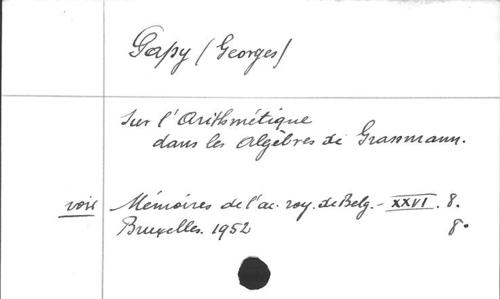 Papy (Georges)
Sur l'Arithmétique
dans les Algèbres de Grassmann.
voir Mémoires de l'ac. roy. de Belg. - XXVI. 8.
Bruxelles. 1952 8°